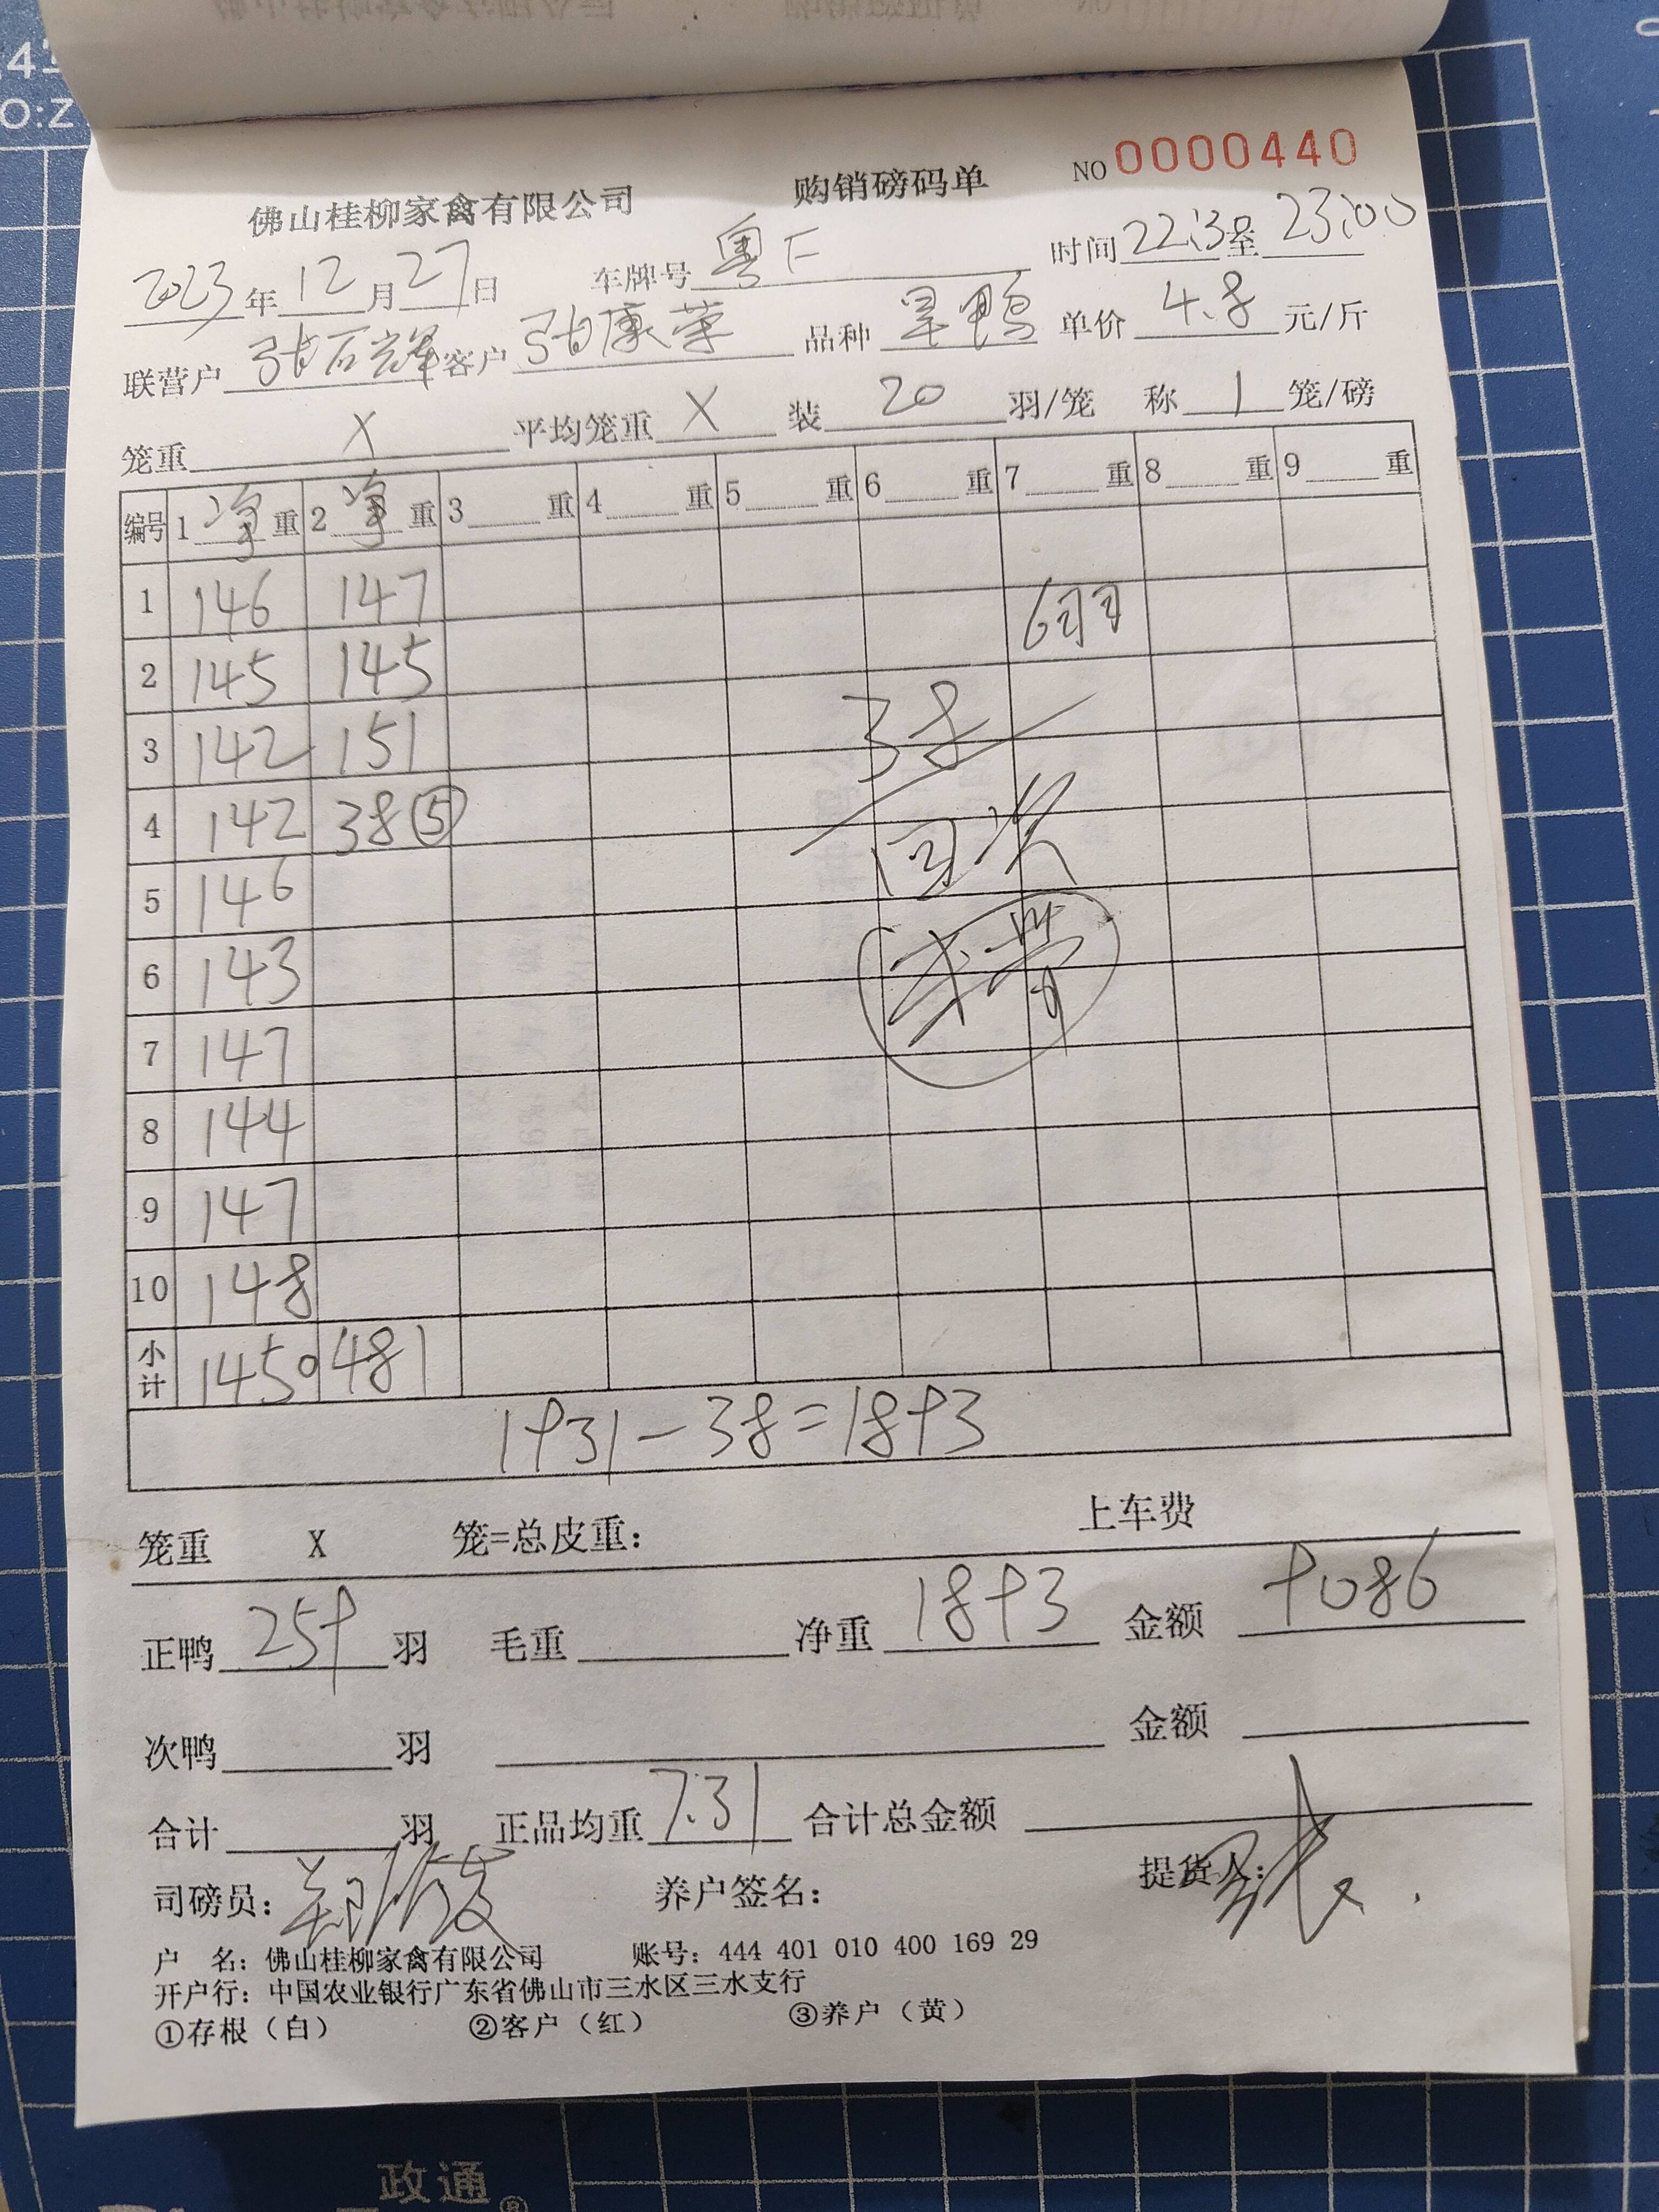 NO 0000440
佛山桂柳家禽有限公司 购销磅码单
2023年12月27日 车牌号 粤F 时间 22:30至 23:00
联营户 张石辉 客户 张康荣 品种 旱鸭 单价 4.8 元/斤
笼重 X 平均笼重 X 装 20 羽/笼 称 1 笼/磅
编号 1 净 重 2 净 重 3 重 4 重 5 重 6 重 7 重 8 重 9 重
1 146 147 6羽
2 145 145
3 142 151 38
4 142 38⑤ 回次
5 146
6 143
7 147
8 144
9 147
10 148
小计 1450 481
1931-38=1893
笼重 X 笼=总皮重: 上车费
正鸭 259 羽 毛重 净重 1893 金额 9086
次鸭 羽 金额
合计 羽 正品均重 7.31 合计总金额
司磅员: 养户签名: 提货人:
户 名: 佛山桂柳家禽有限公司 账号: 444 401 010 400 169 29
开户行: 中国农业银行广东省佛山市三水区三水支行
①存根(白) ②客户(红) ③养户(黄)
政通®